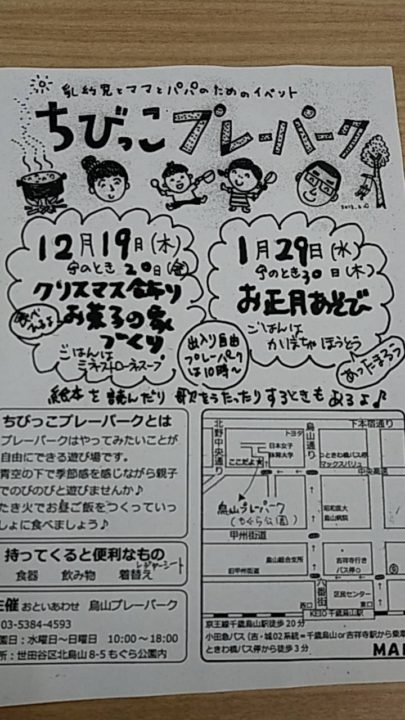 乳幼児とママとパパのためのイベント
ちびっこプレーパーク
12月19日(木)
雨のとき20日(金)
クリスマス飾り
食べれるよ
お菓子の家
づくり
ごはんは
ミネストローネスープ
出入り自由
プレーパーク
は10時~
1月29日(水)
雨のとき30日(木)
お正月あそび
ごはんは
かぼちゃほうとう
あったまろう
絵本を読んだり歌をうたったりするときもあるよ♪
ちびっこプレーパークとは
プレーパークはやってみたいことが
自由にできる遊び場です。
青空の下で季節感を感じながら親子
でのびのびと遊びませんか♪
たき火でお昼ご飯をつくっていっ
しょに食べましょう♪
持ってくると便利なもの
レジャーシート
食器 飲み物 着替え
主催 おといあわせ 烏山プレーパーク
03-5384-4593
園日:水曜日~日曜日 10:00~18:00
所:世田谷区北烏山8-5もぐら公園内
北野中央通り
烏山通り
下本宿通り
トヨタ
日本女子
体育大学
ここだよ★
ときわ橋バス停
マックスバリュ
中央高速
烏山プレーパーク
(もぐら公園)
昭和医大
烏山病院
甲州街道
烏山総合支所
吉祥寺行き
バス停
旧甲州街道
西口
区民センター
東口
KEIO 千歳烏山駅
京王線千歳烏山駅徒歩20分
小田急バス(吉・城02系統=千歳烏山or吉祥寺駅から乗車
ときわ橋バス停から徒歩3分
MA